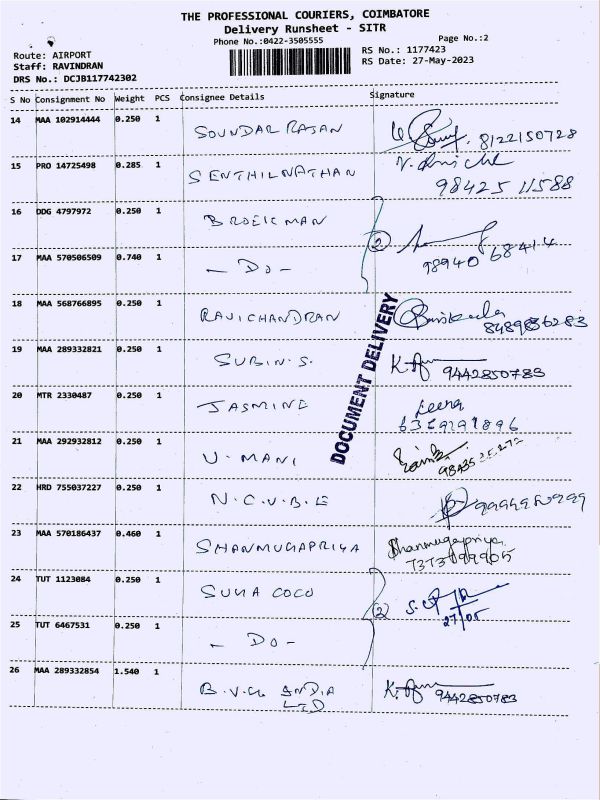 THE PROFESSIONAL COURIERS, COIMBATORE
Delivery Runsheet - SITR
Phone No.:0422-3505555
Page No.:2
Route: AIRPORT
Staff: RAVINDRAN
DRS No.: DCJB117742302
RS No.: 1177423
RS Date: 27-May-2023
S No Consignment No Weight PCS Consignee Details Signature
14 MAA 102914444 0.250 1 SOUNDAR RAJAN 8122150728
15 PRO 14725498 0.285 1 SENTHILNATHAN 98425 11588
16 DDG 4797972 0.250 1 BROEKMAN
17 MAA 570506509 0.740 1 - DO - 2 98940 68414
18 MAA 568766895 0.250 1 RAVICHANDRAN
19 MAA 289332821 0.250 1 SUBIN.S. 9442850783
20 MTR 2330487 0.250 1 JASMINE Leena
21 MAA 292932812 0.250 1 U. MANI
22 HRD 755037227 0.250 1 N.C.U.B.E
23 MAA 570186437 0.460 1 SHANMUGAPRIYA Shanmugapriya 7373099905
24 TUT 1123084 0.250 1 SUNA COCO 2 27/05
25 TUT 6467531 0.250 1 - DO -
26 MAA 289332854 1.540 1 B.V.G INDIA LTD 9442850783
DOCUMENT DELIVERY